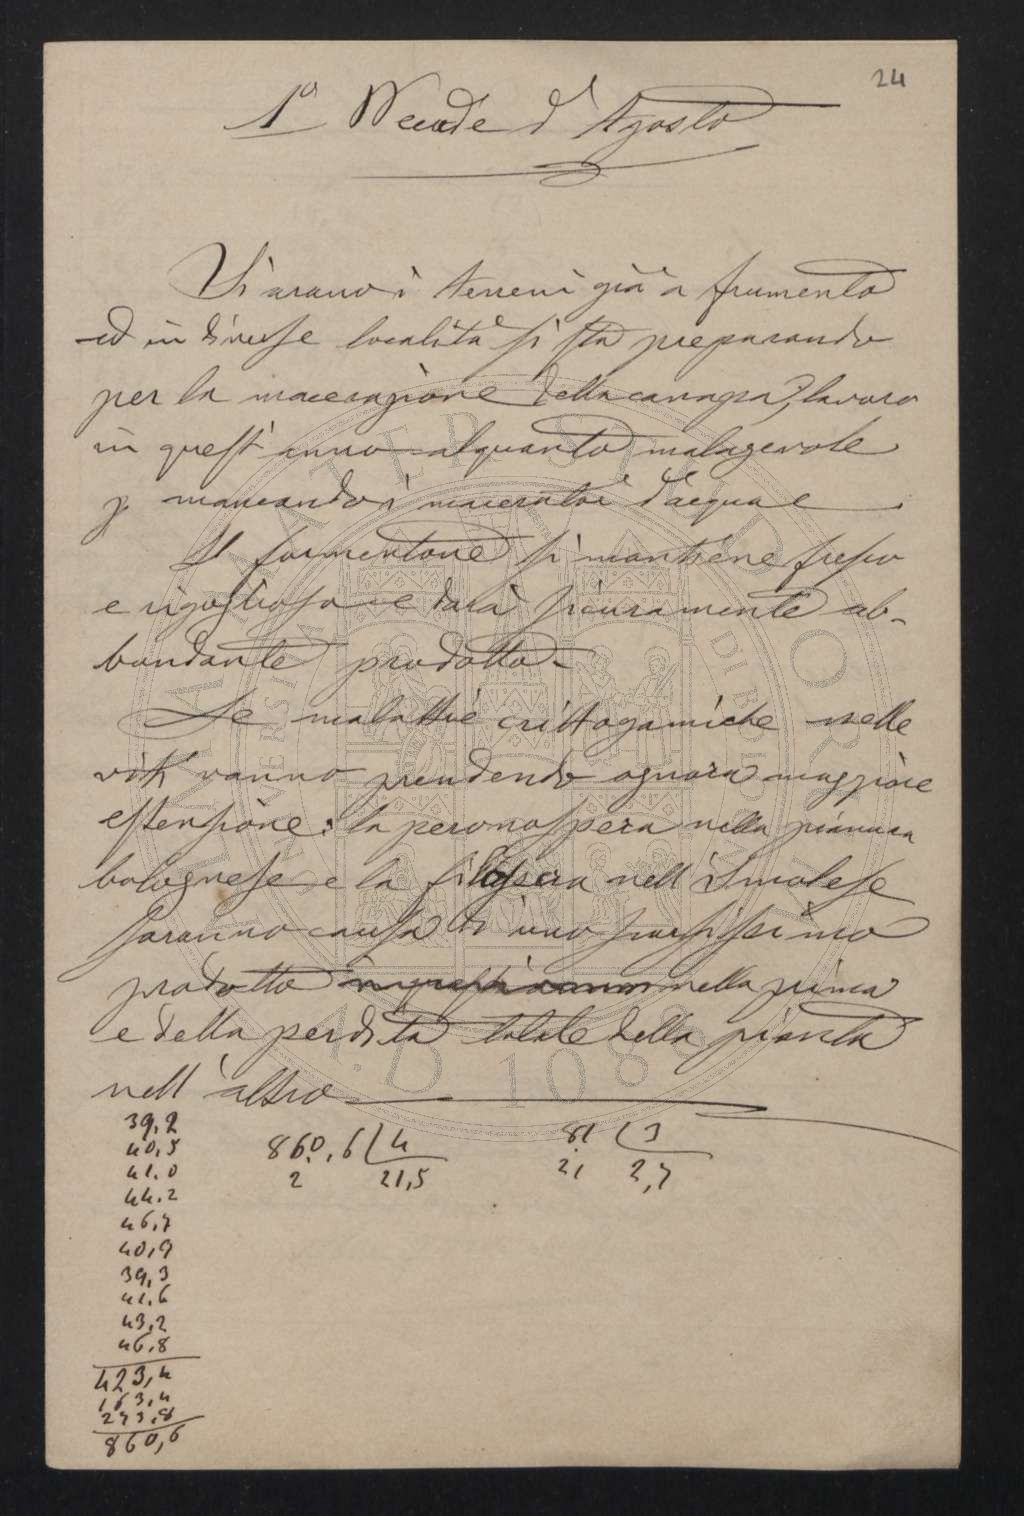 24
1ª Decade d'Agosto
Si arano i terreni già a frumento
ed in diverse località si sta preparando
per la macerazione della canapa, lavoro
in quest'anno alquanto malagevole
p. mancando i maceratoi d'acqua e
Il formentone si mantiene fresco
e rigoglioso e darà sicuramente ab-
bondante prodotto.
Le malattie crittogamiche nelle
viti vanno prendendo ognora maggiore
estensione: la peronospera nella pianura
bolognese e la fillossera nell'Imolese
saranno causa di uno scarsissimo
prodotto in quest'anno nella prima
e della perdita totale della pianta
nell'altro
39,2
40,5
41,0
44,2
46,7
40,9
39,3
41,6
43,2
46,8
423,4
163,4
273,8
860,6
860,6 4
2 21,5
81 3
21 2,7
ALMA MATER STUDIORUM
UNIVERSITÀ DI BOLOGNA
A.D. 1088